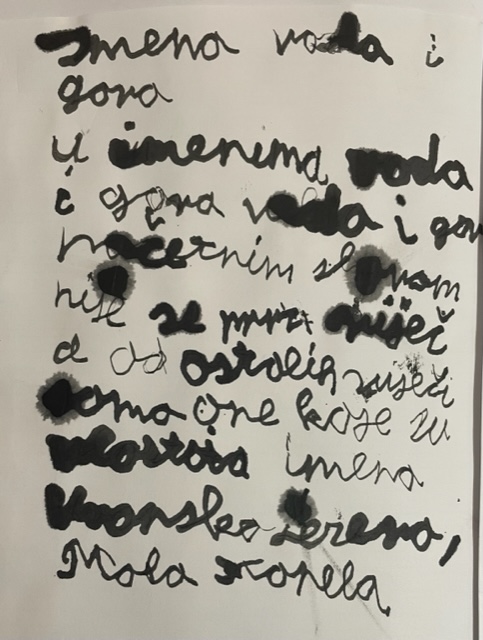 Imena voda i
gora
U imenima voda
i gora voda i gor
početnim slovom
piše se prva riječ
a od ostalih riječi
samo one koje su
vlastita imena
Vransko jezero,
Mala Kapela